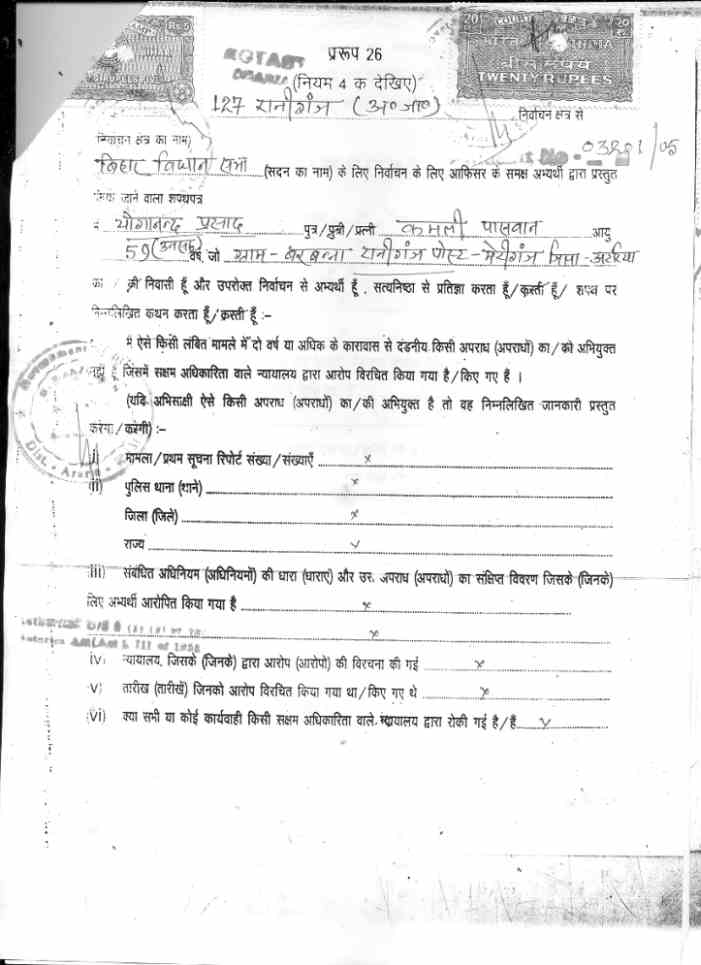 Rs.5
20 INDIA 20
भारत INDIA
बीस रुपये
TWENTY RUPEES
NOTARY
प्ररूप 26
(नियम 4 क देखिए)
127 रानीगंज (अ० जा०)
निर्वाचन क्षेत्र से
(निर्वाचन क्षेत्र का नाम)
No. 03801/05
बिहार विधान सभा (सदन का नाम) के लिए निर्वाचन के लिए आफिसर के समक्ष अभ्यर्थी द्वारा प्रस्तुत
किया जाने वाला शपथपत्र
मैं योगानन्द प्रसाद पुत्र/पुत्री/पत्नी कमली पासवान आयु
59 (उनसठ) वर्ष, जो ग्राम - बरबन्ना रानीगंज पोस्ट - मेरीगंज जिला - अररिया
का / की निवासी हूँ और उपरोक्त निर्वाचन से अभ्यर्थी हूँ, सत्यनिष्ठा से प्रतिज्ञा करता हूँ/करती हूँ/ शपथ पर
निम्नलिखित कथन करता हूँ/करती हूँ :–
मैं ऐसे किसी लंबित मामले में दो वर्ष या अधिक के कारावास से दंडनीय किसी अपराध (अपराधों) का/की अभियुक्त
नहीं हूँ जिसमें सक्षम अधिकारिता वाले न्यायालय द्वारा आरोप विरचित किया गया है/किए गए हैं ।
(यदि अभिसाक्षी ऐसे किसी अपराध (अपराधों) का/की अभियुक्त है तो वह निम्नलिखित जानकारी प्रस्तुत
करेगा/करेगी) :–
i) मामला/प्रथम सूचना रिपोर्ट संख्या/संख्याएँ x
ii) पुलिस थाना (थाने) x
जिला (जिले) x
राज्य x
iii) संबंधित अधिनियम (अधिनियमों) की धारा (धाराएं) और उस अपराध (अपराधों) का संक्षिप्त विवरण जिसके (जिनके)
लिए अभ्यर्थी आरोपित किया गया है x
x
iv) न्यायालय, जिसके (जिनके) द्वारा आरोप (आरोपों) की विरचना की गई x
v) तारीख (तारीखें) जिनको आरोप विरचित किया गया था/किए गए थे x
vi) क्या सभी या कोई कार्यवाही किसी सक्षम अधिकारिता वाले न्यायालय द्वारा रोकी गई है/हैं x